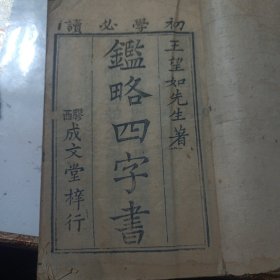 初學必讀
王望如先生著
鑑略四字書
醪醅成文堂梓行